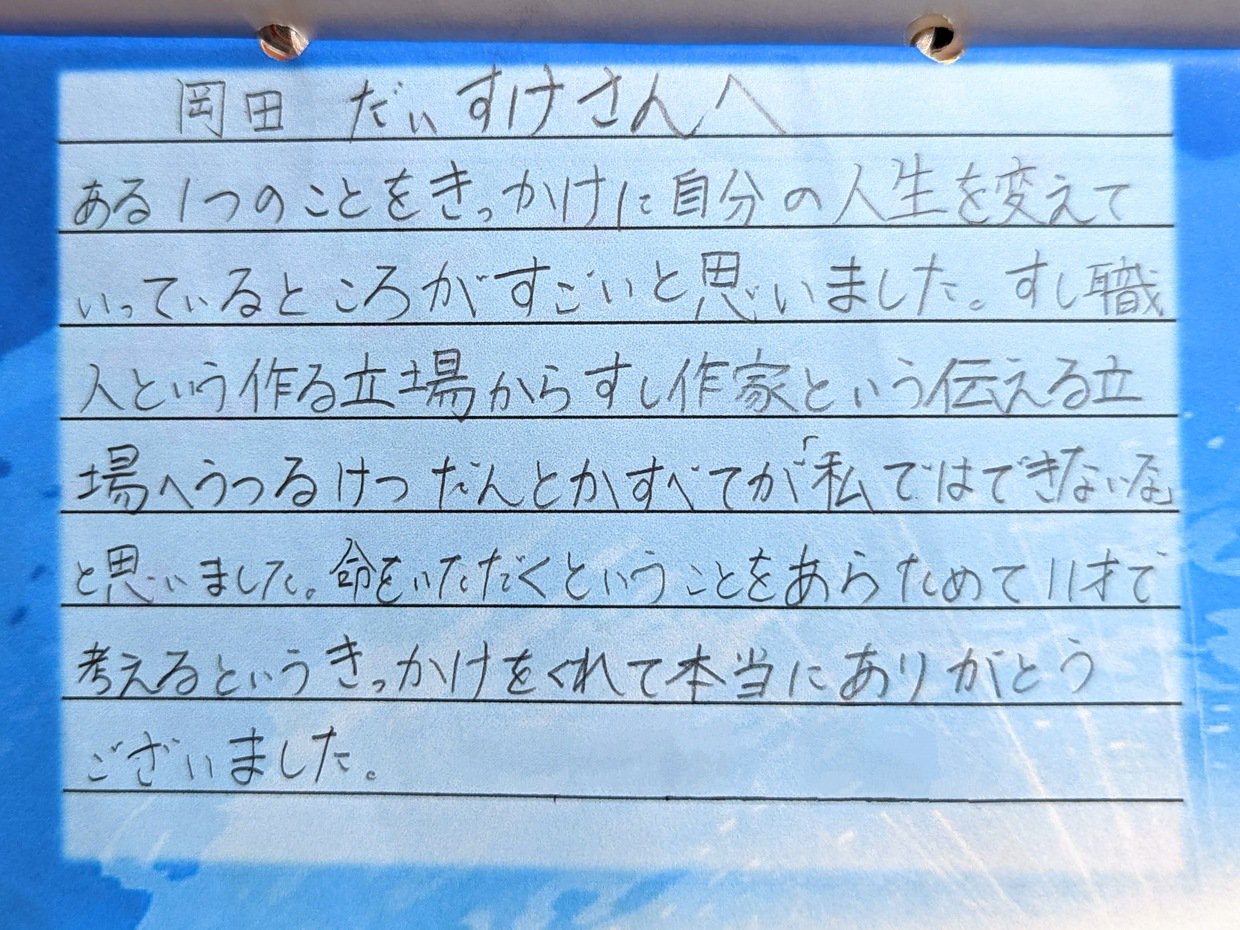 岡田 だいすけさんへ
ある1つのことをきっかけに自分の人生を変えて
いっているところがすごいと思いました。すし職
人という作る立場からすし作家という伝える立
場へうつるけつだんとかすべてが「私ではできないな」
と思いました。命をいただくということをあらためて11才で
考えるというきっかけをくれて本当にありがとう
ございました。